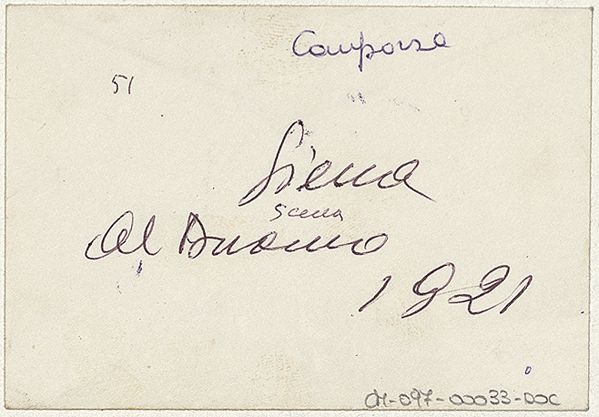 Camporsa
51
Siena
Scena
Al Duomo
1921
CH-097-00033-DOC